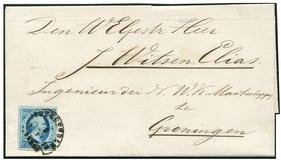 Den WelEestr Heer
J. Witsen Elias.
Ingenieur der N. W. K. Maatschappij
te
Groningen